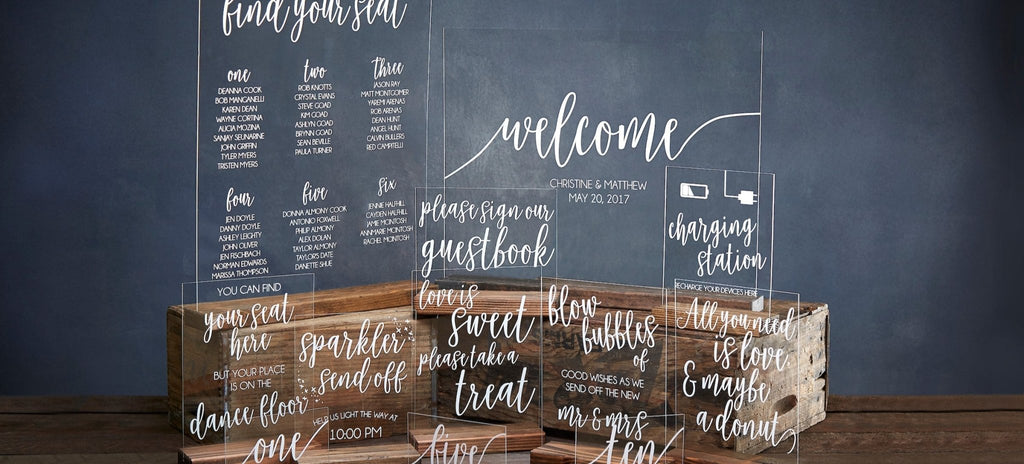 find your seat
one
DEANNA COOK
BOB MANCANELLI
KAREN DEAN
WAYNE CORTINA
ALICIA MOZINA
SANJAY SEUNARINE
JOHN GRIFFIN
TYLER MYERS
TRISTEN MYERS
two
ROB KNOTTS
CRYSTAL EVANS
STEVE GOAD
KIM GOAD
ASHLYN GOAD
BRYNN GOAD
SEAN BEVILLE
PAULA TURNER
three
JASON RAY
MATT MONTGOMER
YAREMI ARENAS
ROB ARENAS
DEAN HUNT
ANGEL HUNT
CALVIN BULLERS
RED CAMPITELLI
four
JEN DOYLE
DANNY DOYLE
ASHLEY LEIGHTY
JOHN OLIVER
JEN FISCHBACH
NORMAN EDWARDS
MARISSA THOMPSON
five
DONNA ALMONY COOK
ANTONIO FOXWELL
PHILIP ALMONY
ALEX DOLAN
TAYLOR ALMONY
TAYLOR'S DATE
DANETTE SHUE
six
JENNIE HALFHILL
CAYDEN HALFHILL
JAMIE MCINTOSH
ANNMARIE MCINTOSH
RACHEL MCINTOSH
welcome
CHRISTINE & MATTHEW
MAY 20, 2017
please sign our
guestbook
charging
station
RECHARGE YOUR DEVICES HERE
YOU CAN FIND
your seat
here
BUT YOUR PLACE
IS ON THE
dance floor
sparkler
send off
HELP US LIGHT THE WAY AT
10:00 PM
love is
sweet
please take a
treat
blow
bubbles
of
GOOD WISHES AS WE
SEND OFF THE NEW
mr & mrs
All you need
is love
& maybe
a donut
one
five
ten